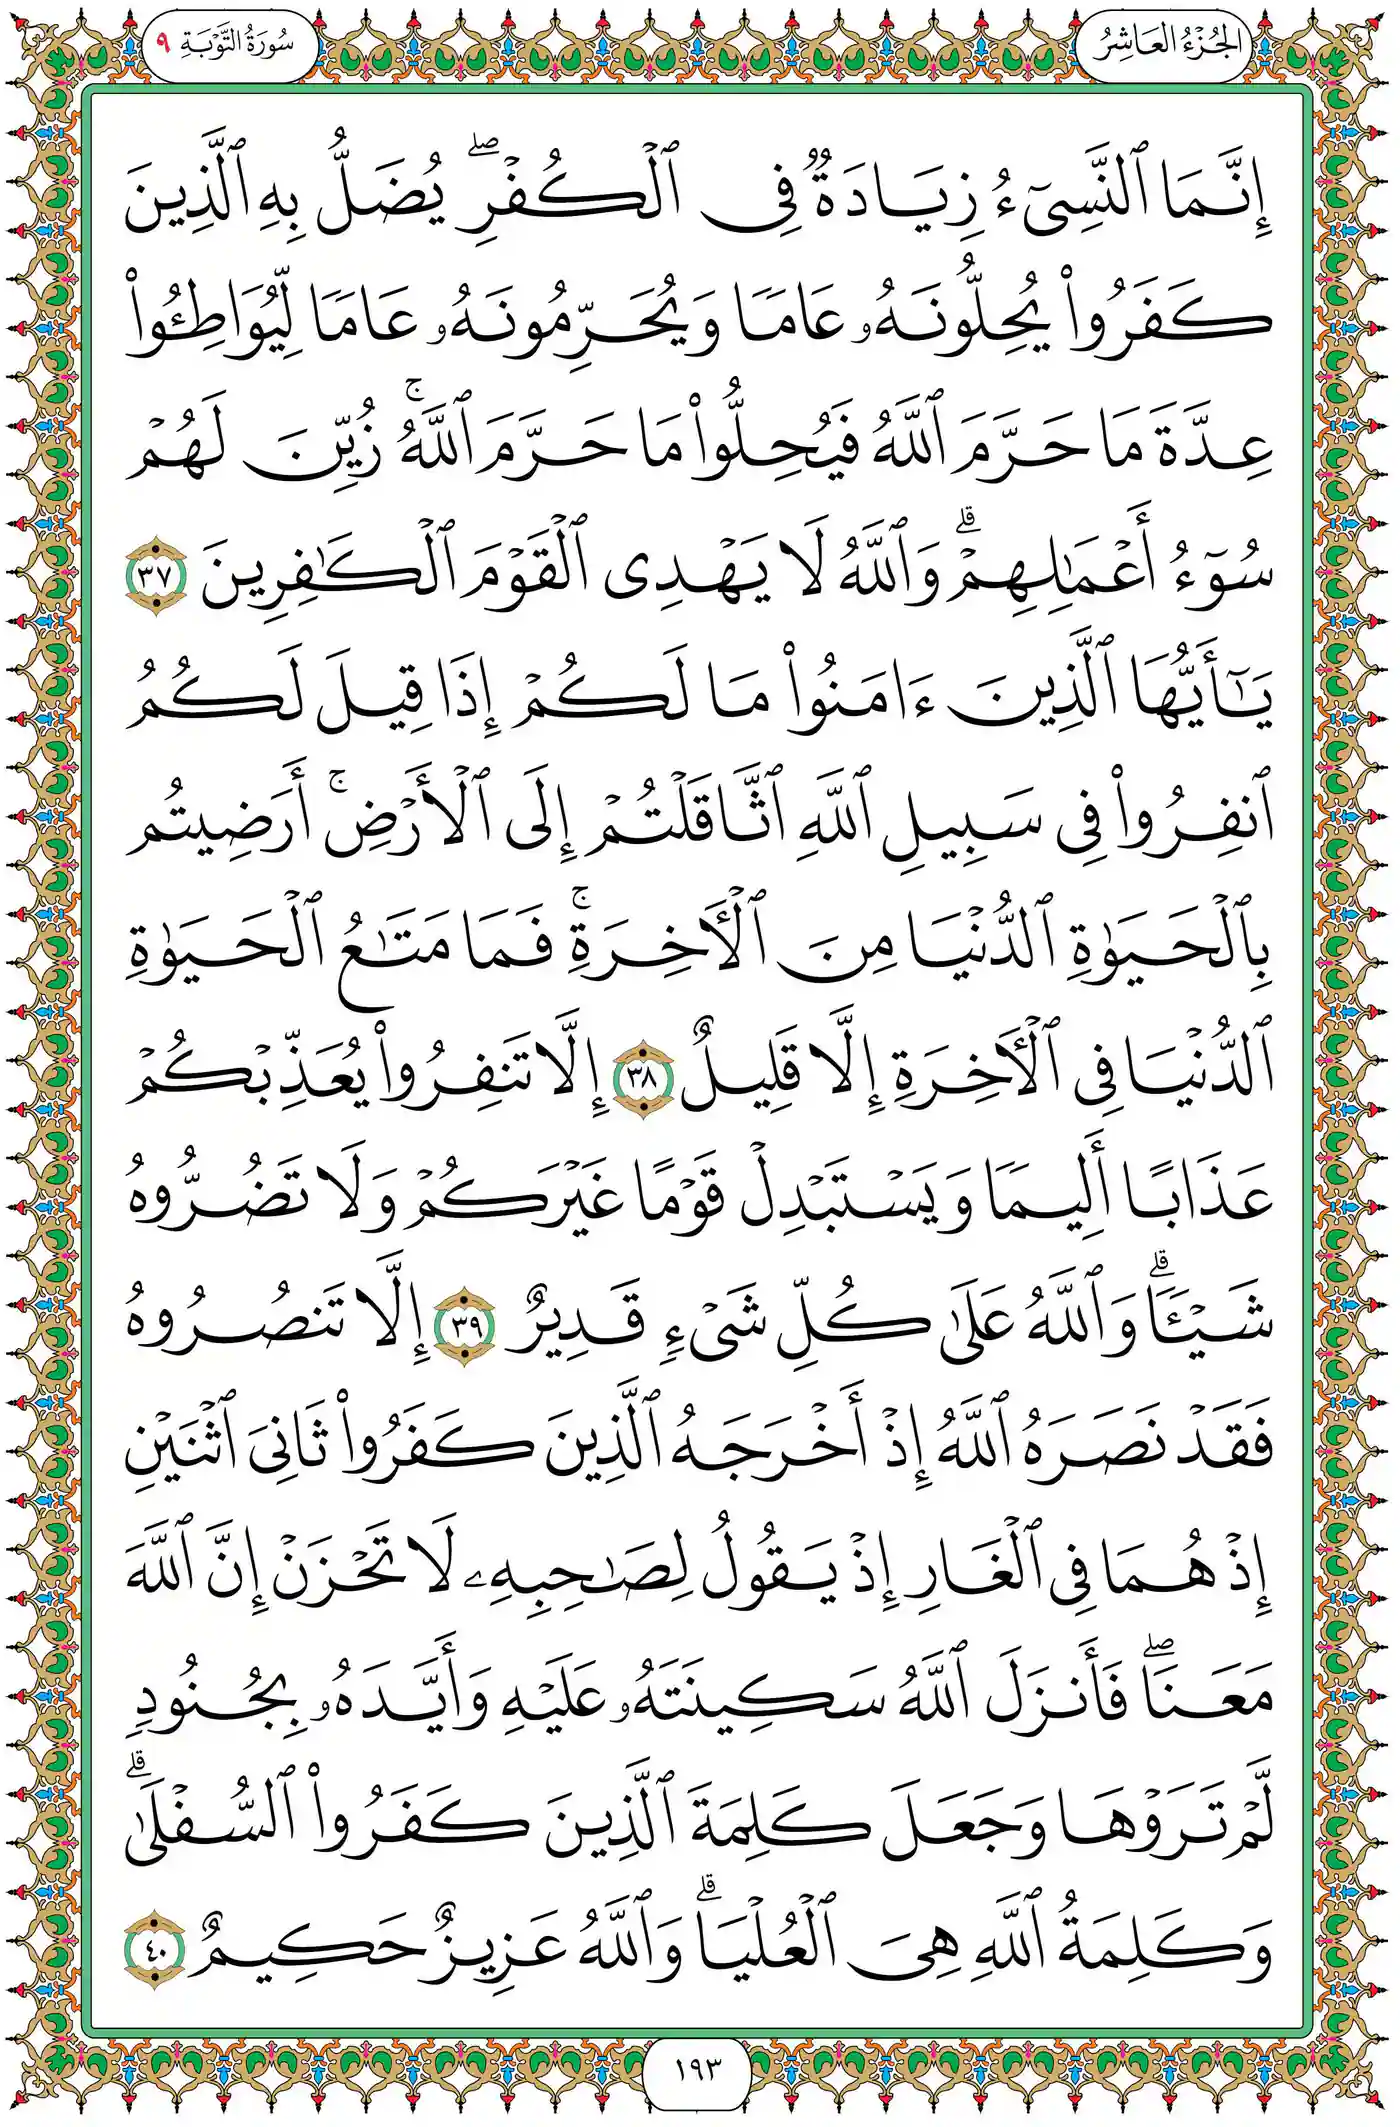 سُورَةُ التَّوْبَةِ ٩
الجُزْءُ العَاشِرُ
إِنَّمَا ٱلنَّسِىٓءُ زِيَادَةٌ فِى ٱلْكُفْرِ ۖ يُضَلُّ بِهِ ٱلَّذِينَ
كَفَرُوا۟ يُحِلُّونَهُۥ عَامًا وَيُحَرِّمُونَهُۥ عَامًا لِّيُوَاطِـُٔوا۟
عِدَّةَ مَا حَرَّمَ ٱللَّهُ فَيُحِلُّوا۟ مَا حَرَّمَ ٱللَّهُ ۚ زُيِّنَ لَهُمْ
سُوٓءُ أَعْمَـٰلِهِمْ ۗ وَٱللَّهُ لَا يَهْدِى ٱلْقَوْمَ ٱلْكَـٰفِرِينَ ٣٧
يَـٰٓأَيُّهَا ٱلَّذِينَ ءَامَنُوا۟ مَا لَكُمْ إِذَا قِيلَ لَكُمُ
ٱنفِرُوا۟ فِى سَبِيلِ ٱللَّهِ ٱثَّاقَلْتُمْ إِلَى ٱلْأَرْضِ ۚ أَرَضِيتُم
بِٱلْحَيَوٰةِ ٱلدُّنْيَا مِنَ ٱلْـَٔاخِرَةِ ۚ فَمَا مَتَـٰعُ ٱلْحَيَوٰةِ
ٱلدُّنْيَا فِى ٱلْـَٔاخِرَةِ إِلَّا قَلِيلٌ ٣٨ إِلَّا تَنفِرُوا۟ يُعَذِّبْكُمْ
عَذَابًا أَلِيمًا وَيَسْتَبْدِلْ قَوْمًا غَيْرَكُمْ وَلَا تَضُرُّوهُ
شَيْـًٔا ۗ وَٱللَّهُ عَلَىٰ كُلِّ شَىْءٍ قَدِيرٌ ٣٩ إِلَّا تَنصُرُوهُ
فَقَدْ نَصَرَهُ ٱللَّهُ إِذْ أَخْرَجَهُ ٱلَّذِينَ كَفَرُوا۟ ثَانِىَ ٱثْنَيْنِ
إِذْ هُمَا فِى ٱلْغَارِ إِذْ يَقُولُ لِصَـٰحِبِهِۦ لَا تَحْزَنْ إِنَّ ٱللَّهَ
مَعَنَا ۖ فَأَنزَلَ ٱللَّهُ سَكِينَتَهُۥ عَلَيْهِ وَأَيَّدَهُۥ بِجُنُودٍ
لَّمْ تَرَوْهَا وَجَعَلَ كَلِمَةَ ٱلَّذِينَ كَفَرُوا۟ ٱلسُّفْلَىٰ ۗ
وَكَلِمَةُ ٱللَّهِ هِىَ ٱلْعُلْيَا ۗ وَٱللَّهُ عَزِيزٌ حَكِيمٌ ٤٠
١٩٣